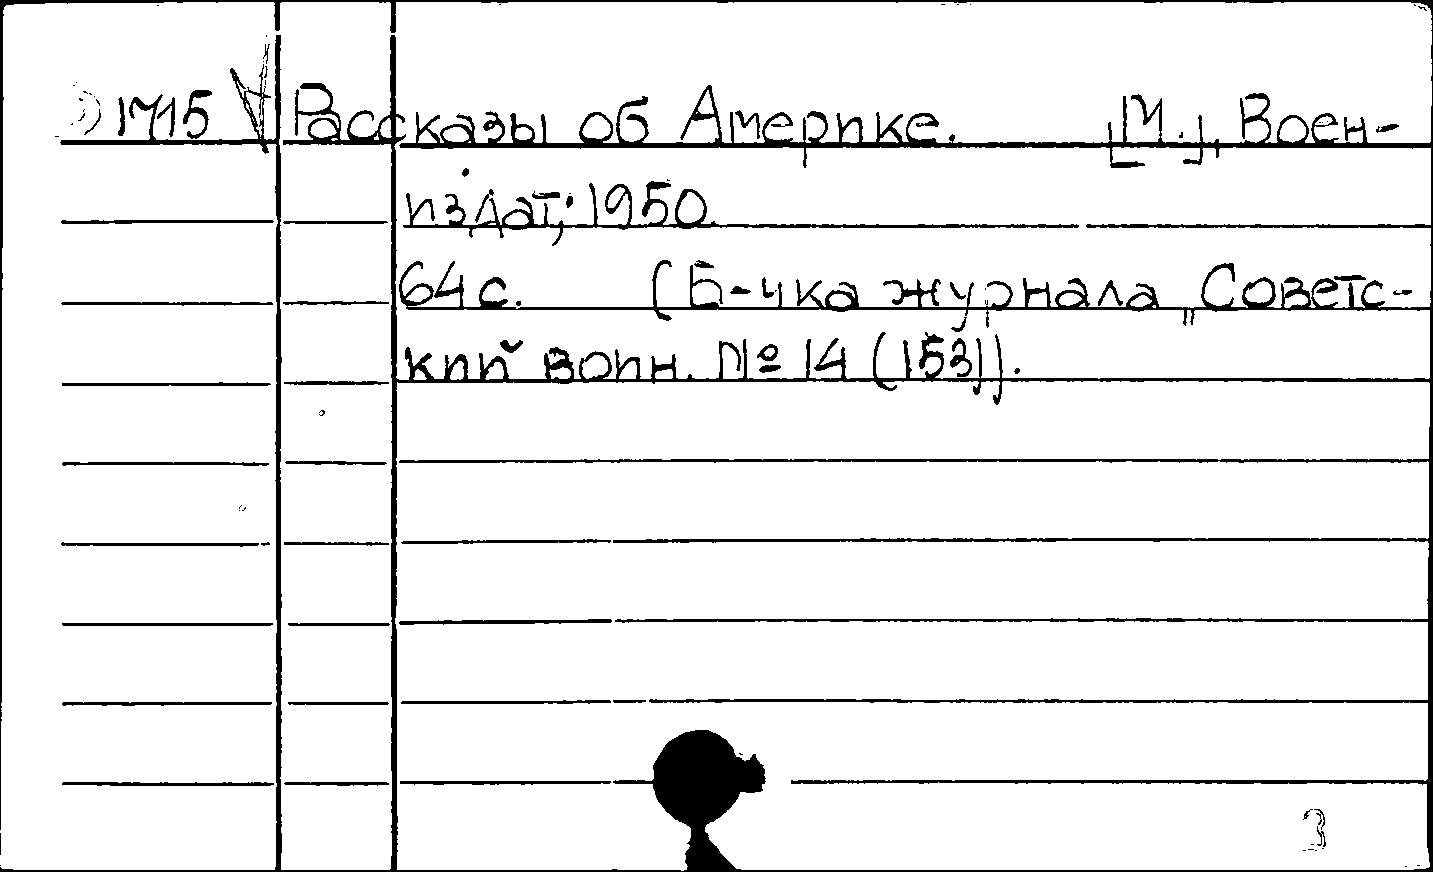 1715 Рассказы об Америке. [М.], Воен-
издат, 1950.
64 с. (Б-чка журнала „Советс-
кий воин. № 14 (153)).
3